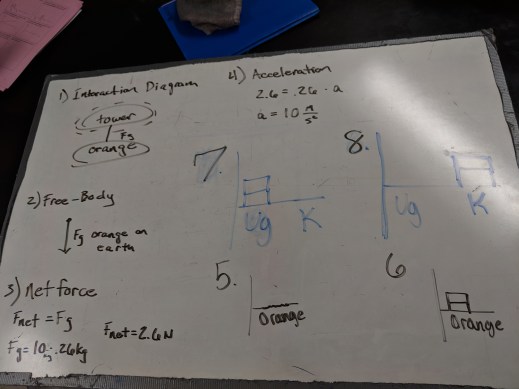 1) Interaction Diagram
tower
Fg
orange
2) Free-Body
Fg orange on
earth
3) Net force
Fnet = Fg
Fnet = 2.6N
Fg = 10 · .26kg
4) Acceleration
2.6 = .26 · a
a = 10 m/s²
7.
Ug K
8.
Ug K
5.
Orange
6
Orange